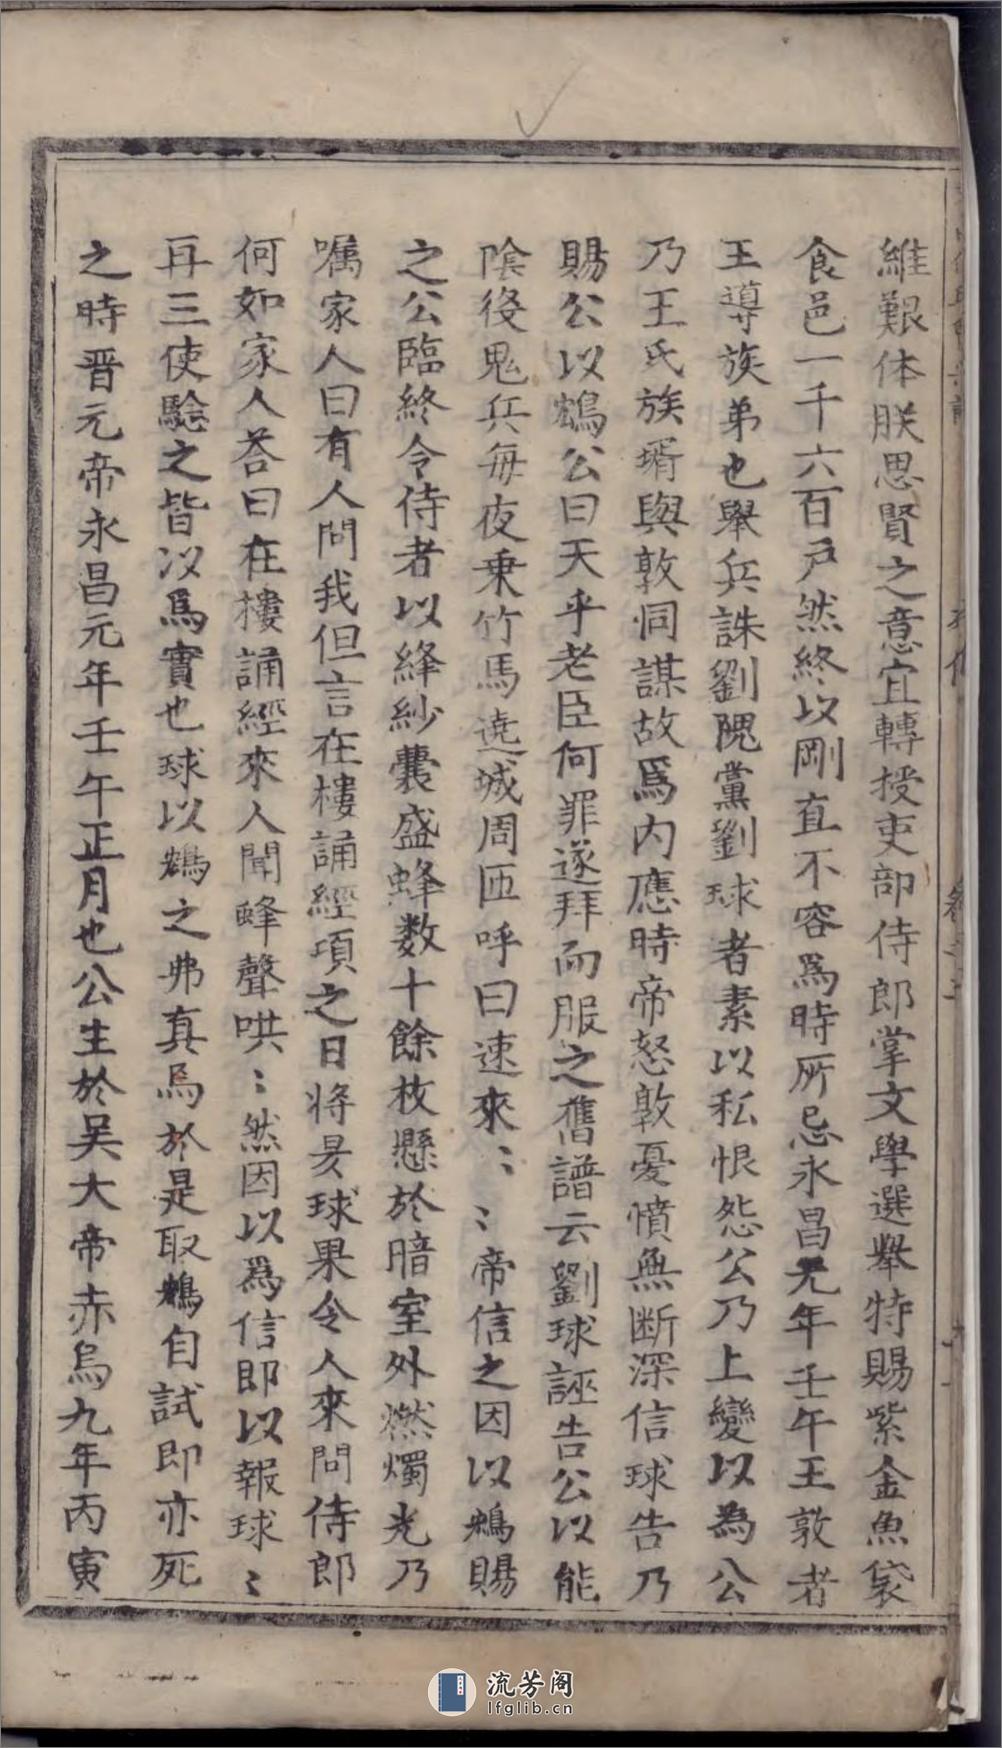 維艱体朕思賢之意宜轉授吏部侍郎掌文學選舉特賜紫金魚袋
食邑一千六百戶然終以剛直不容爲時所忌永昌元年壬午王敦者
王導族弟也舉兵誅劉隗黨劉球者素以私恨怨公乃上變以為公
乃王氏族壻與敦同謀故爲內應時帝怒敦憂憤無断深信球告乃
賜公以鴆公曰天乎老臣何罪遂拜而服之舊譜云劉球誣告公以能
陰役鬼兵每夜乗竹馬遶城周匝呼曰速來〻〻帝信之因以鴆賜
之公臨終令侍者以絳紗囊盛蜂数十餘枚懸於暗室外燃燭光乃
嘱家人曰有人問我但言在樓誦經項之日將昃球果令人來問侍郎
何如家人荅曰在樓誦經來人聞蜂聲哄〻然因以爲信即以報球〻
再三使騐之皆以爲實也球以鴆之弗真焉於是取鴆自試即亦死
之時晋元帝永昌元年壬午正月也公生於吴大帝赤烏九年丙寅
流芳阁
lfglib.cn